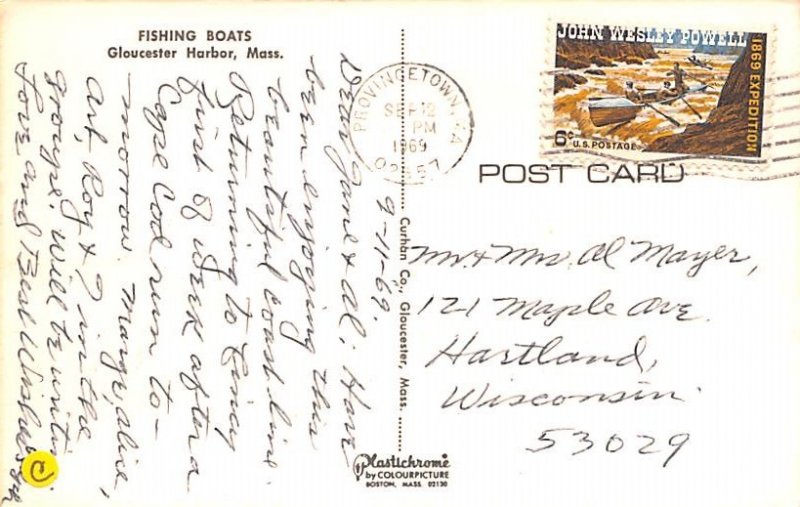 FISHING BOATS
Gloucester Harbor, Mass.
9-11-69.
Dear Jane & Al: Have
been enjoying this
beautiful coast line.
Returning to Cincy
first of week after a
Cape Cod run to-
morrow. Marge, Alice,
Art, Roy & I in the
group. Will be writing
Love and Best Wishes
PROVINCETOWN, MA
SEP 12
PM
1969
02657
JOHN WESLEY POWELL
1869 EXPEDITION
6c U.S. POSTAGE
POST CARD
Mr. & Mrs. Al Mayer,
121 Maple Ave.
Hartland,
Wisconsin.
53029
Curhan Co., Gloucester, Mass.
Plastichrome
by COLOURPICTURE
BOSTON, MASS 02130